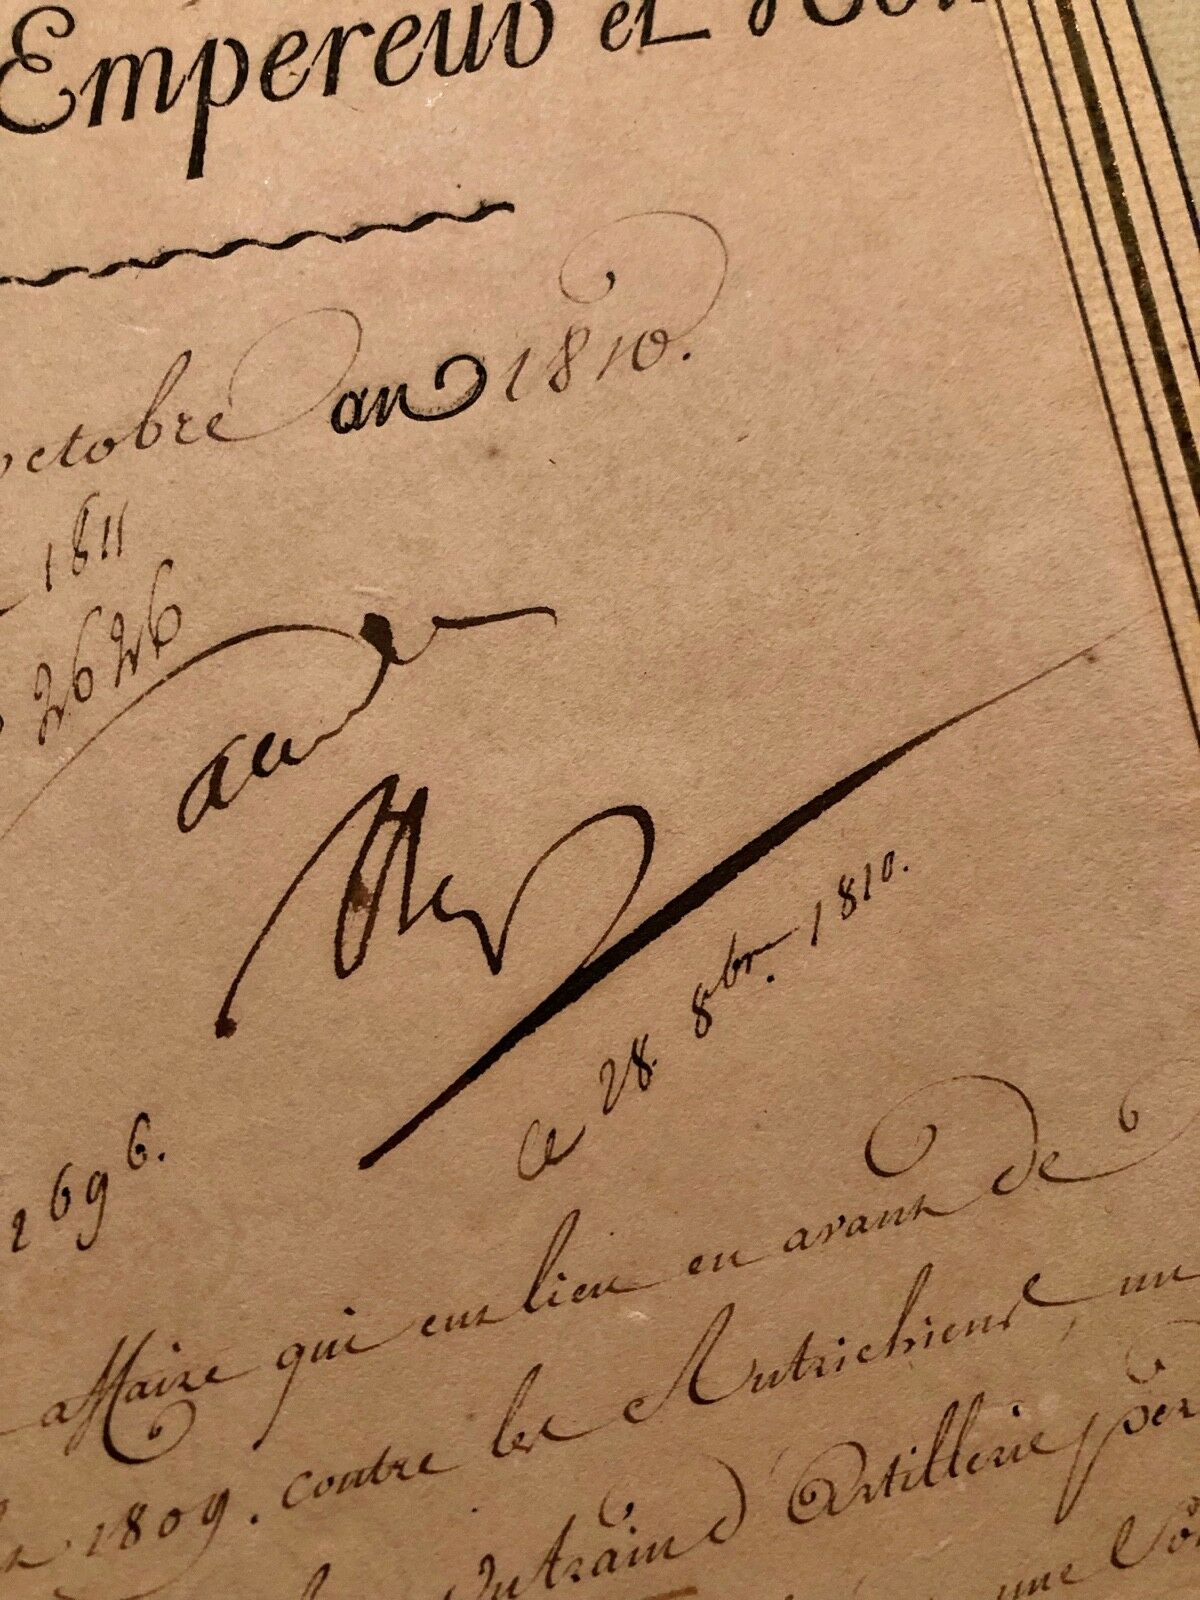 Empereur et Roi
octobre an 1810.
1811
2626
ce 28. 8bre. 1810.
2696.
affaire qui eut lieu en avant de
1809. contre les Autrichiens, un
du train d'Artillerie
une